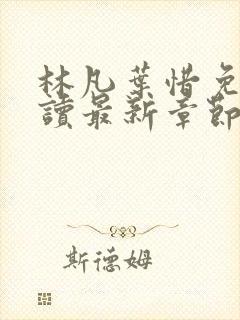 林凡葉惜免
讀最新章節
斯德姆